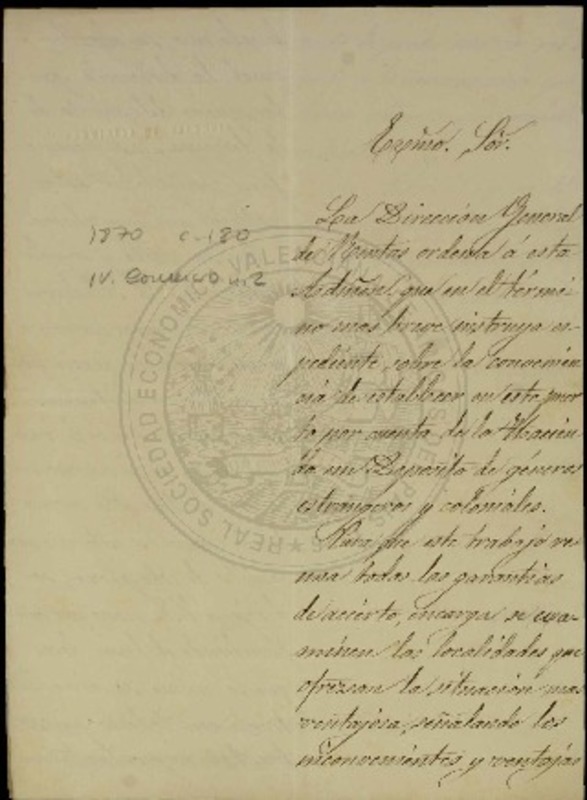 Exmo. Sor.
La Dirección General
de Rentas ordena á esta
Aduana que en el térmi
no mas breve instruya es
pediente, sobre la convenien
cia de establecer en este puer
to por cuenta de la Hacien
da un Depósito de géneros
estrangeros y coloniales.
Para que este trabajo re
una todas las garantias
de acierto, encarga se exa-
minen las localidades que
ofrezcan la situación mas
ventajosa, señalando los
inconvenientes y ventajas
1870 c-180
IV. Comercio n. 2
REAL SOCIEDAD ECONOMICA VALENCIANA